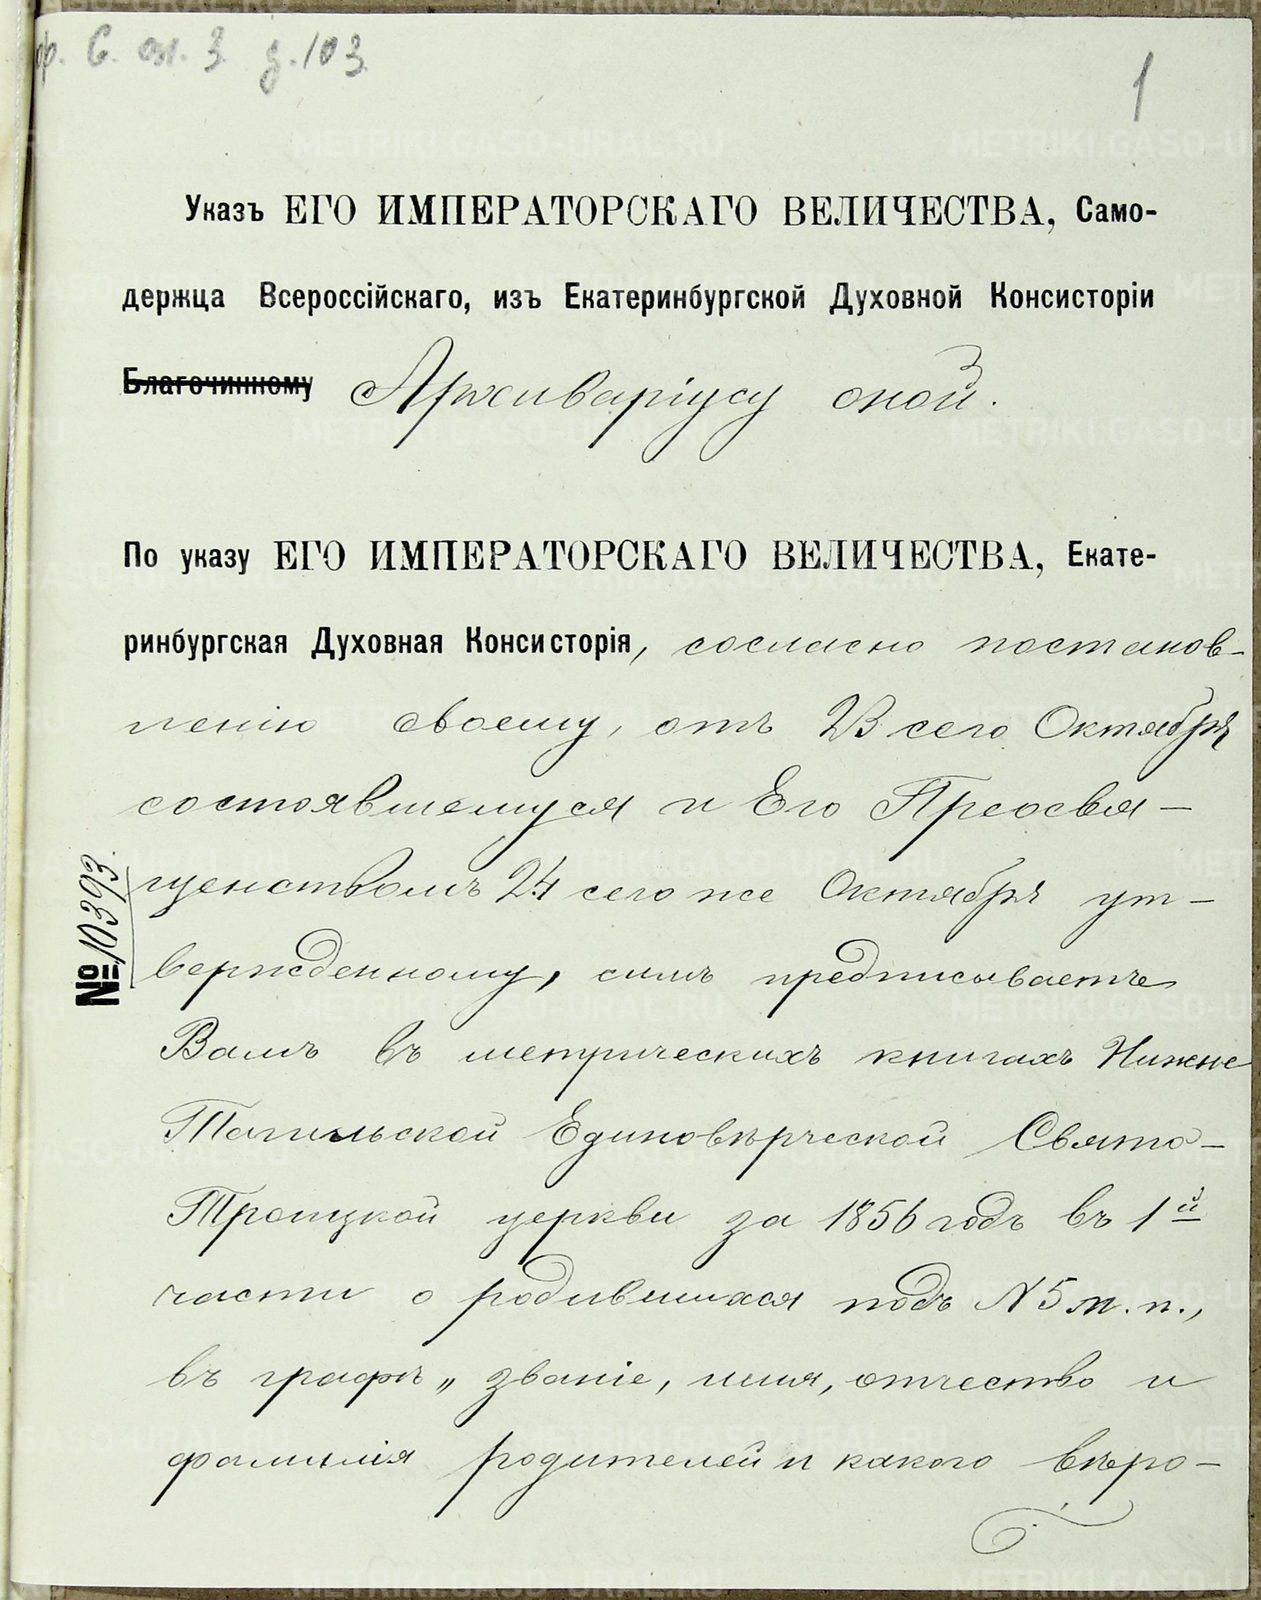 ф. 6. оп. 3 д. 103
1
Указъ ЕГО ИМПЕРАТОРСКАГО ВЕЛИЧЕСТВА, Само-
держца Всероссійскаго, изъ Екатеринбургской Духовной Консисторіи
Благочинному Архиваріусу оной.
По указу ЕГО ИМПЕРАТОРСКАГО ВЕЛИЧЕСТВА, Екате-
ринбургская Духовная Консисторія, согласно постанов-
ленію своему, отъ 23 сего Октября
состоявшемуся и Его Преосвя-
щенствомъ 24 сего же Октября ут-
вержденному, симъ предписываетъ
№ 10393
Вамъ въ метрическихъ книгахъ Нижне
Тагильской Единовѣрческой Свято-
Троицкой церкви за 1856 годъ въ 1й
части о родившихся подъ № 5 м. п.,
въ графѣ „званіе, имя, отчество и
фамилія родителей и какого вѣро-
METRIKI.GASO-URAL.RU